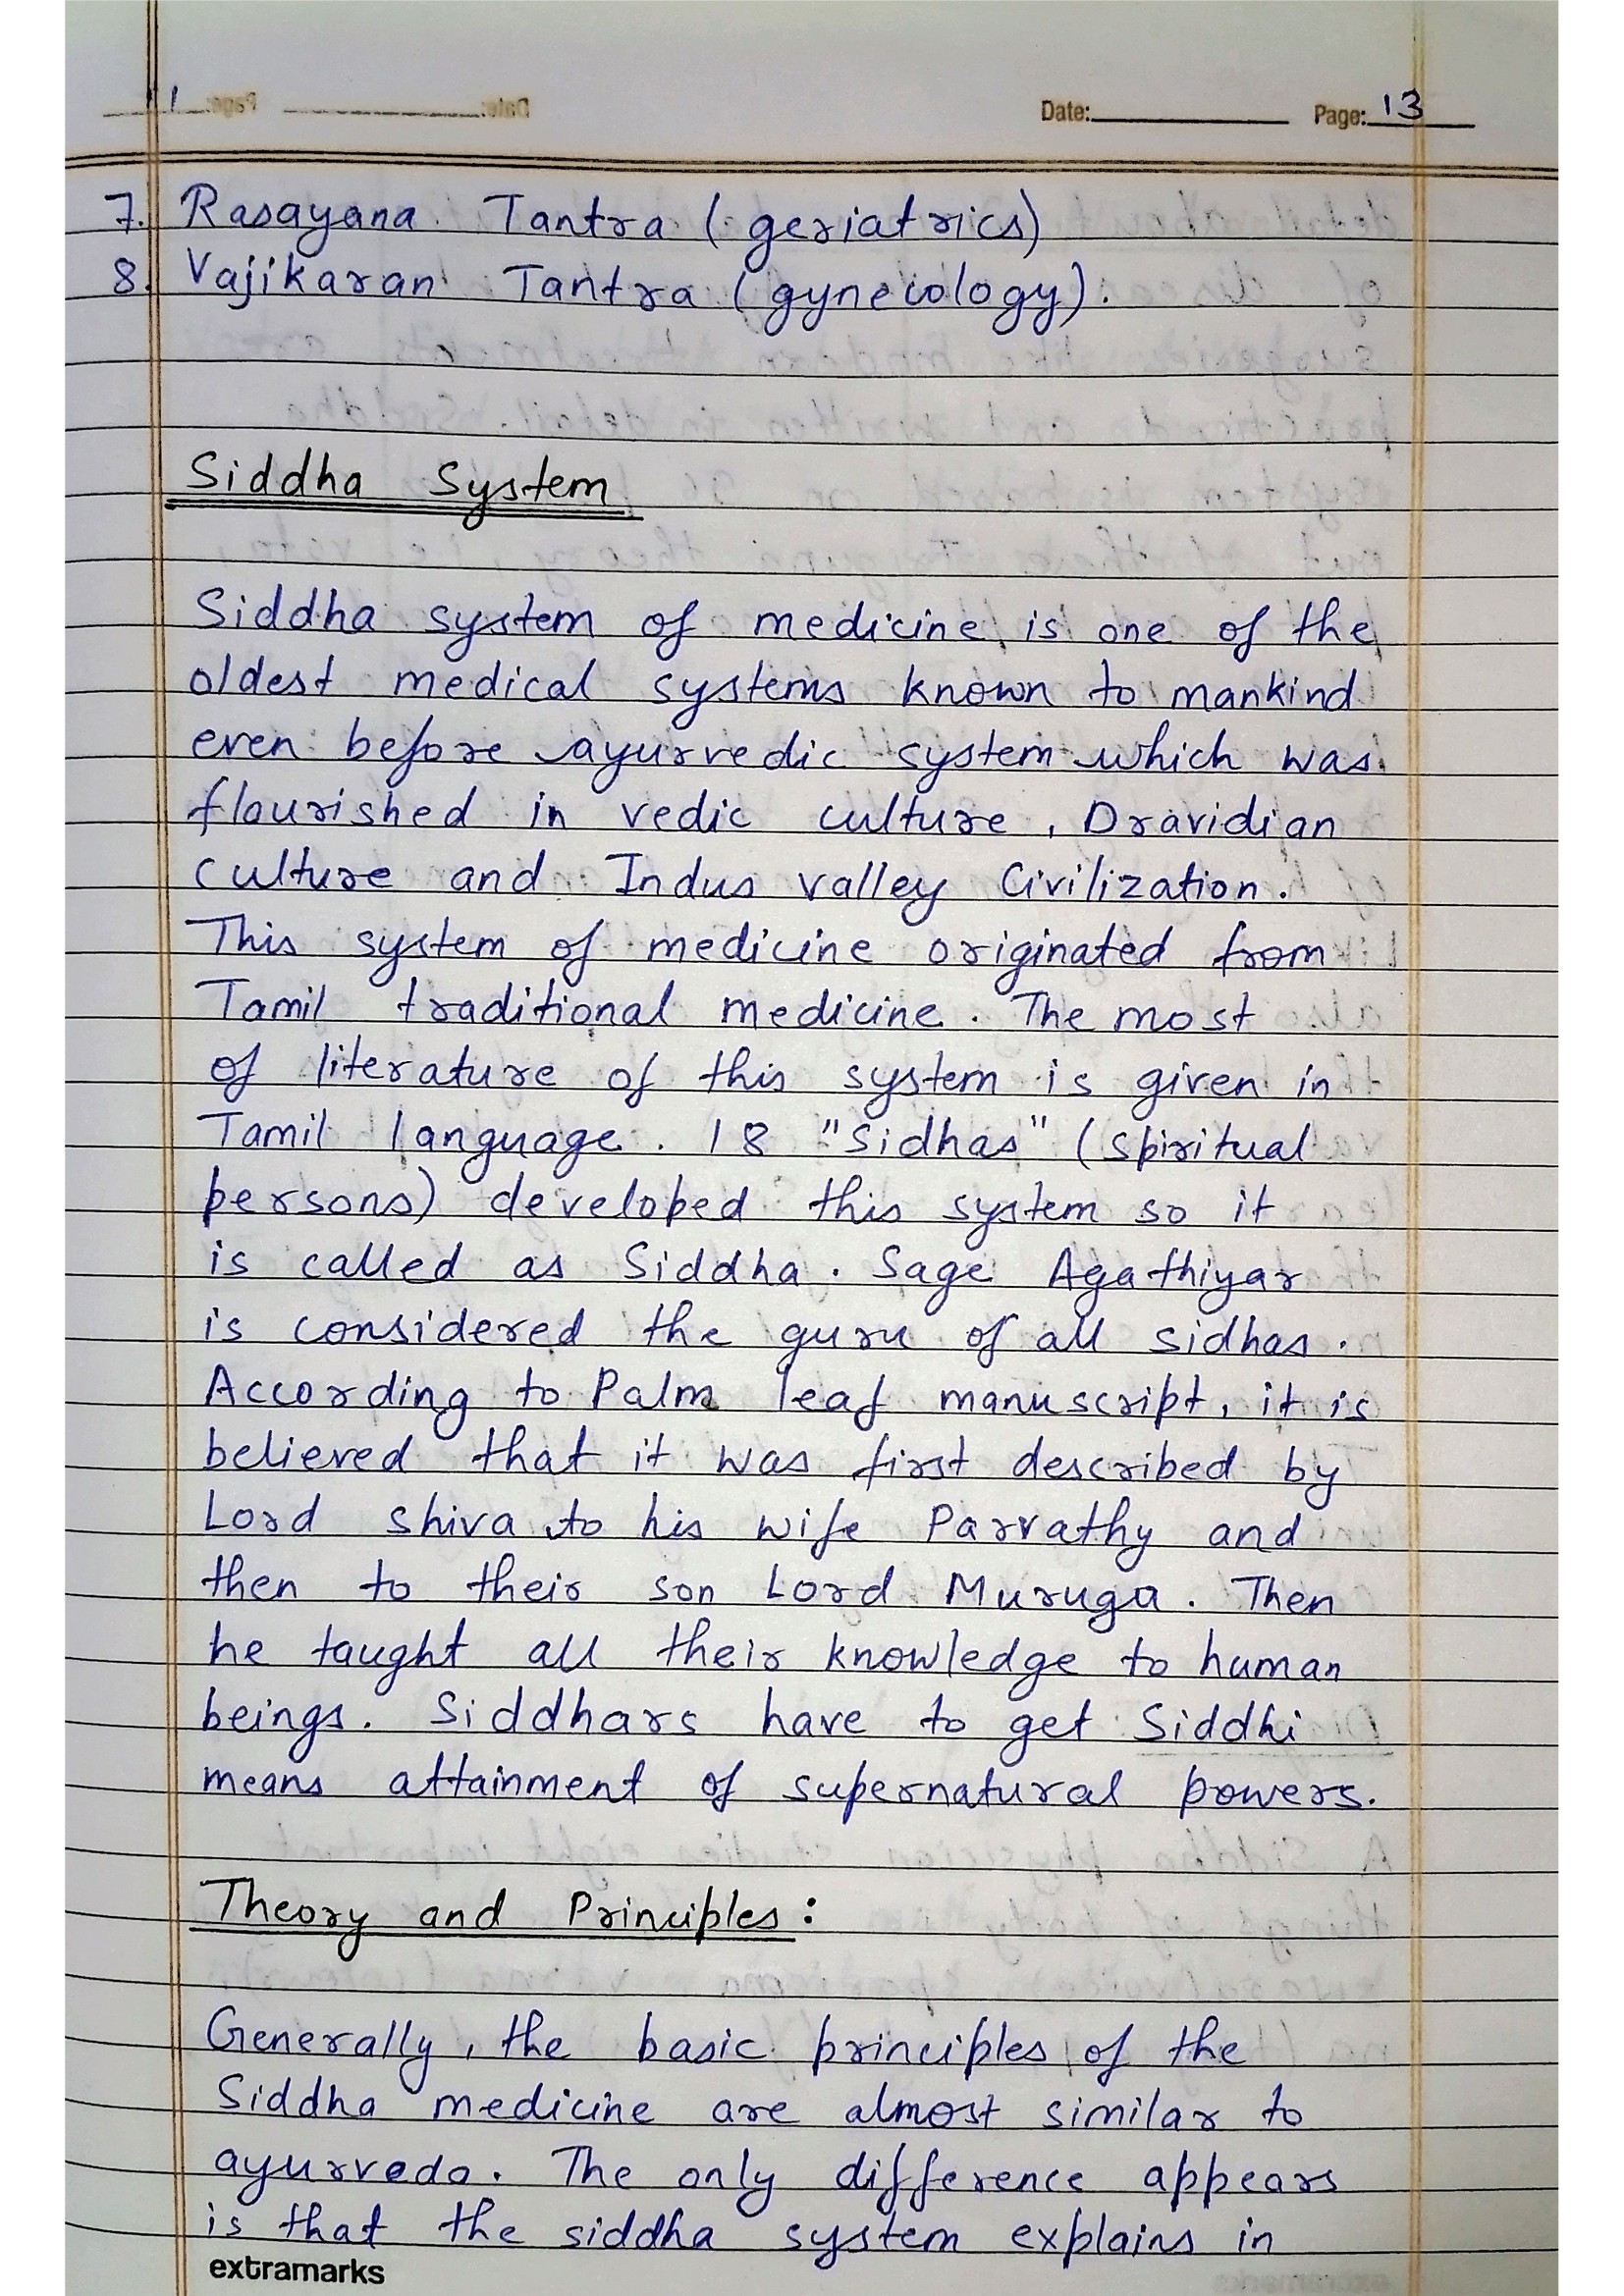 Date: Page: 13
7. Rasayana Tantra (geriatrics)
8. Vajikaran Tantra (gynecology).
Siddha System
Siddha system of medicine is one of the
oldest medical systems known to mankind
even before ayurvedic system which was
flourished in vedic culture, Dravidian
culture and Indus valley Civilization.
This system of medicine originated from
Tamil traditional medicine. The most
of literature of this system is given in
Tamil language. 18 "Sidhas" (spiritual
persons) developed this system so it
is called as Siddha. Sage Agathiyar
is considered the guru of all sidhas.
According to Palm leaf manuscript, it is
believed that it was first described by
Lord shiva to his wife Parvathy and
then to their son Lord Muruga. Then
he taught all their knowledge to human
beings. Siddhars have to get Siddhi
means attainment of supernatural powers.
Theory and Principles:
Generally, the basic principles of the
Siddha medicine are almost similar to
ayurveda. The only difference appears
is that the siddha system explains in
extramarks